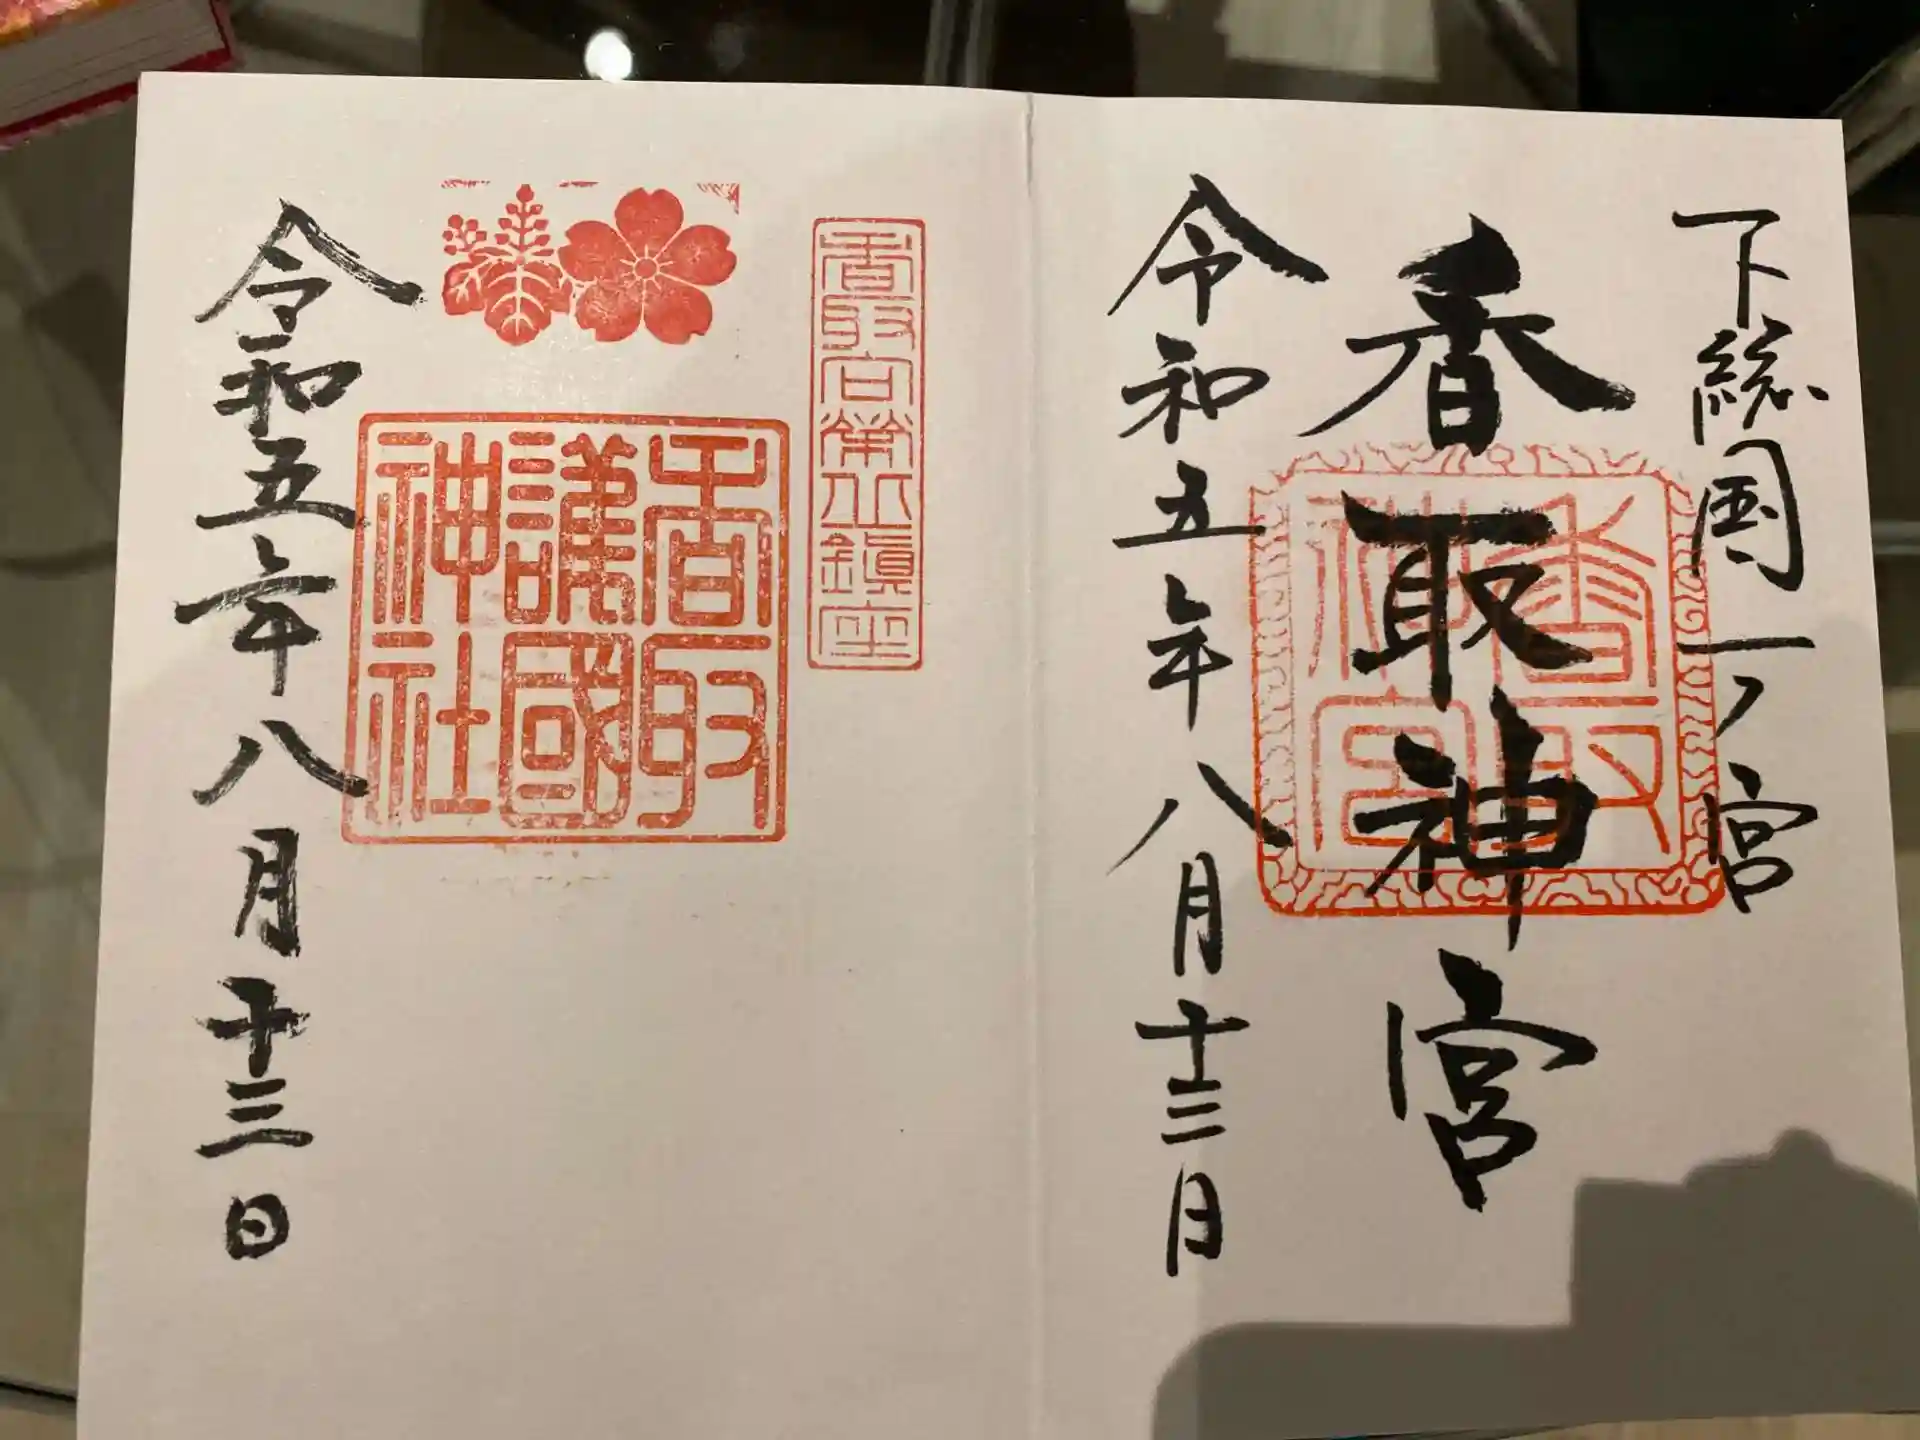 下総国一ノ宮
香取神宮
香取
神宮
令和五年八月十三日
香取宮第止鎮座
香取
護國
神社
令和五年八月十三日